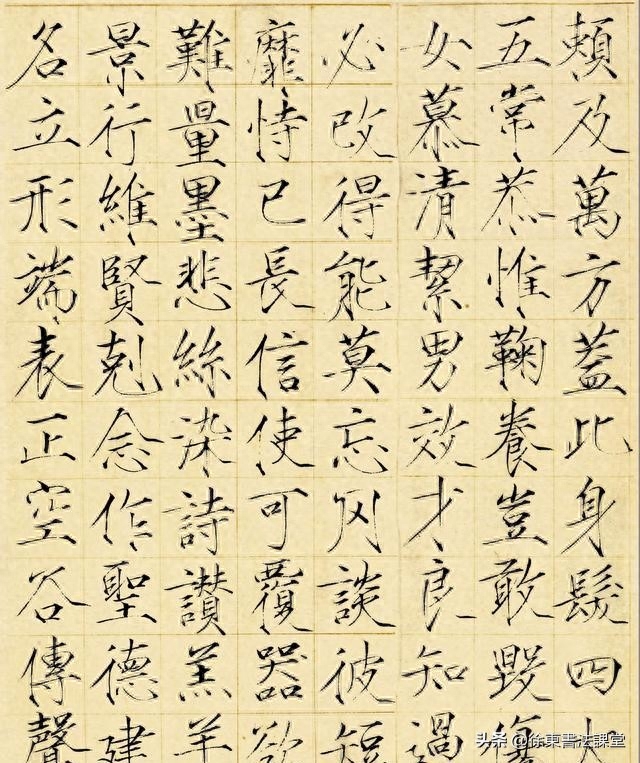 頼及萬方蓋此身髮四大
五常恭惟鞠養豈敢毀傷
女慕清絜男效才良知過
必改得能莫忘罔談彼短
靡恃己長信使可覆器欲
難量墨悲絲染詩讃羔羊
景行維賢剋念作聖德建
名立形端表正空谷傳聲
头条 @徐東書法課堂